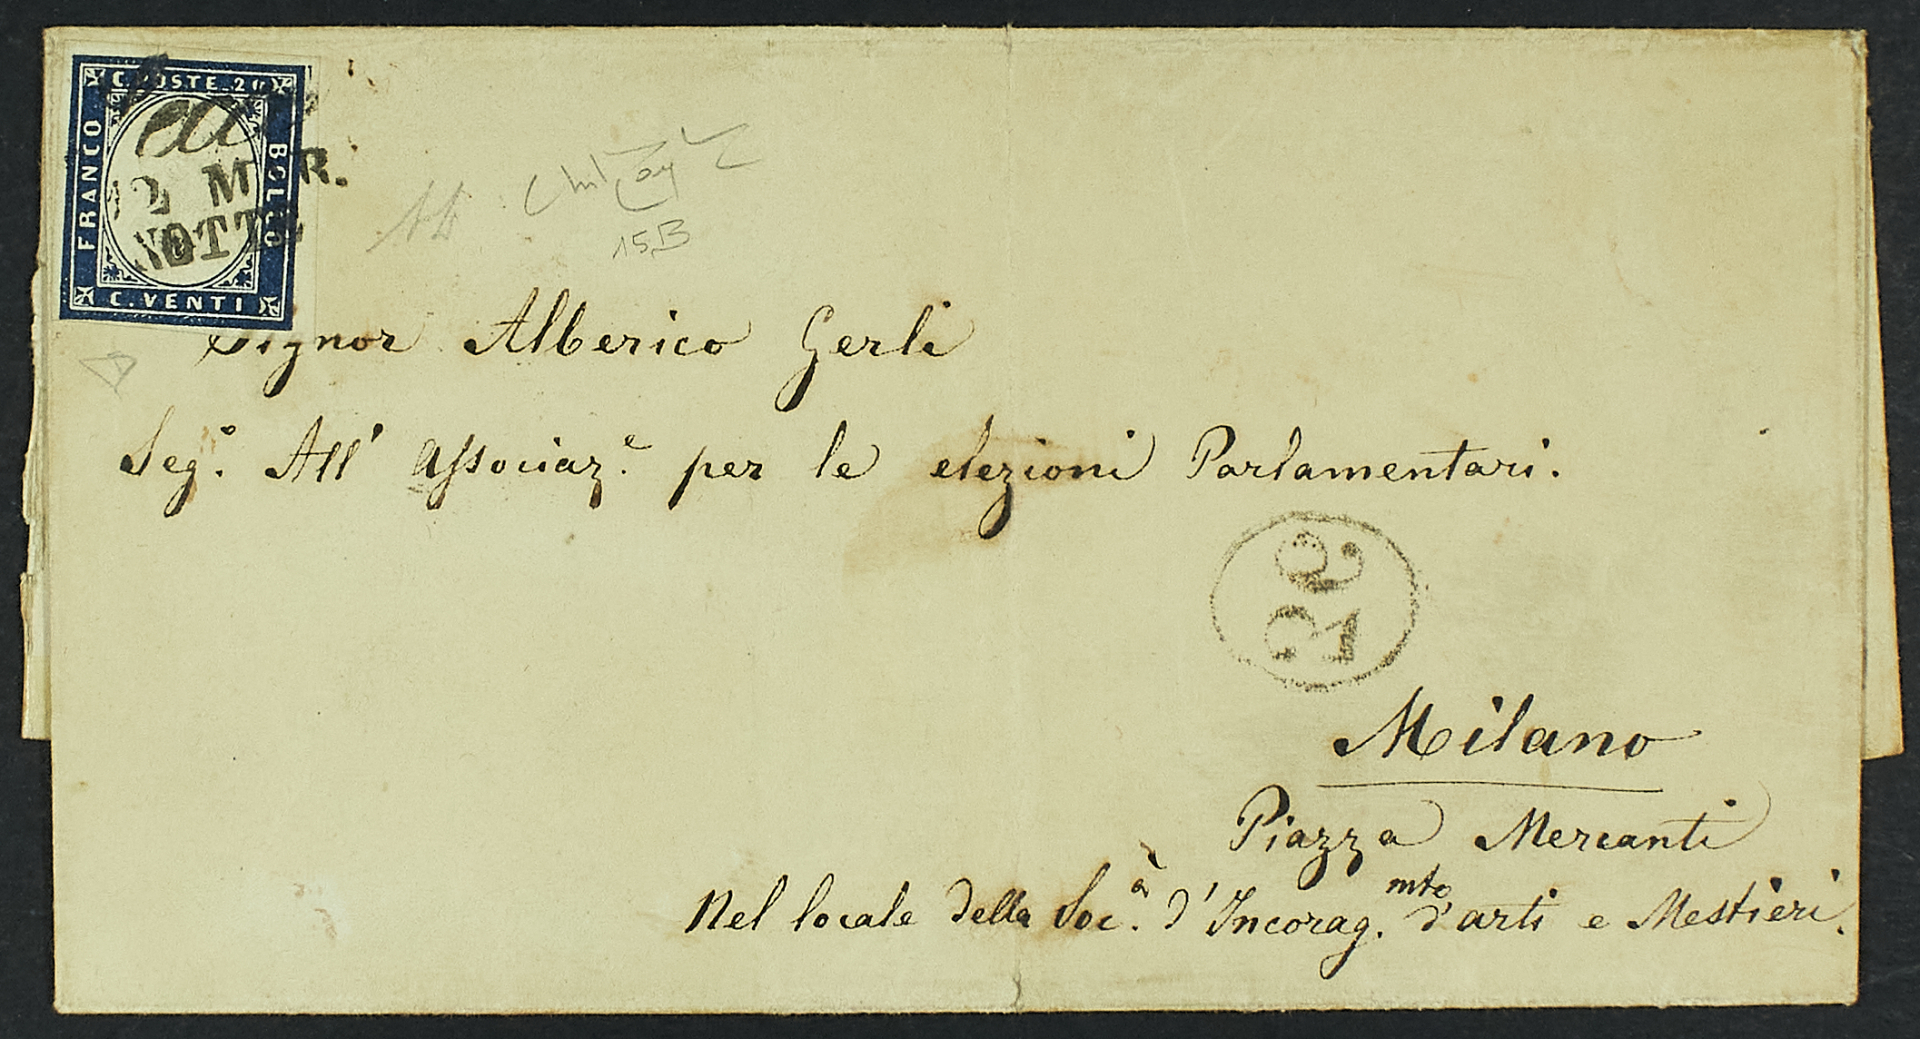 C. POSTE 20
FRANCO
BOLLO
C. VENTI
12 MAR.
NOTTE
15B
Signor Alberico Gerli
Seg.º All' Associaz.e per le elezioni Parlamentari.
Milano
Piazza Mercanti
Nel locale della Soc.à d'Incorag.mto d'arti e Mestieri.